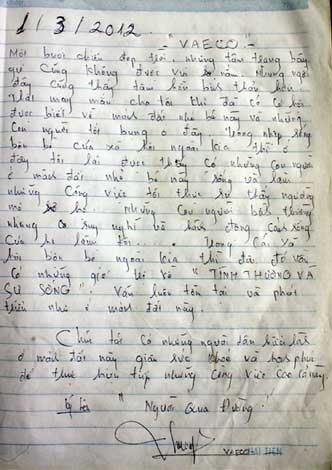 1/3/2012
"VAECO"
Một buổi chiều đẹp trời, những tâm trạng bây
giờ cũng không được vui nữa. Nhưng
đây cũng thấy tâm hồn
Thật may mắn cho tôi khi đã có cơ hội
được biết về mảnh đất nhỏ bé này và những
con người tôi ở đây. Trong nhịp sống
bộn bề của xã hội ngoài kia thì ở
đây tôi lại được thấy có những con người
ở mảnh đất nhỏ bé này sống và làm
những công việc tôi thực sự thấy ngưỡng
mộ họ. những con người bình thường
nhưng có suy nghĩ và hành động cao
của họ làm tôi ..... Trong cái xã
hội bộn bề ngoài kia thì đã
có những giờ về "TÌNH THƯƠNG VÀ
SỰ SỐNG" Vẫn luôn tồn tại và phát
triển như ở mảnh đất này.
Chúc tất cả những người
ở mảnh đất này giàu sức khỏe và hạnh phúc
để thực hiện tiếp những công việc cao cả này.
Ký tên "Người Qua Đường"
VAECO